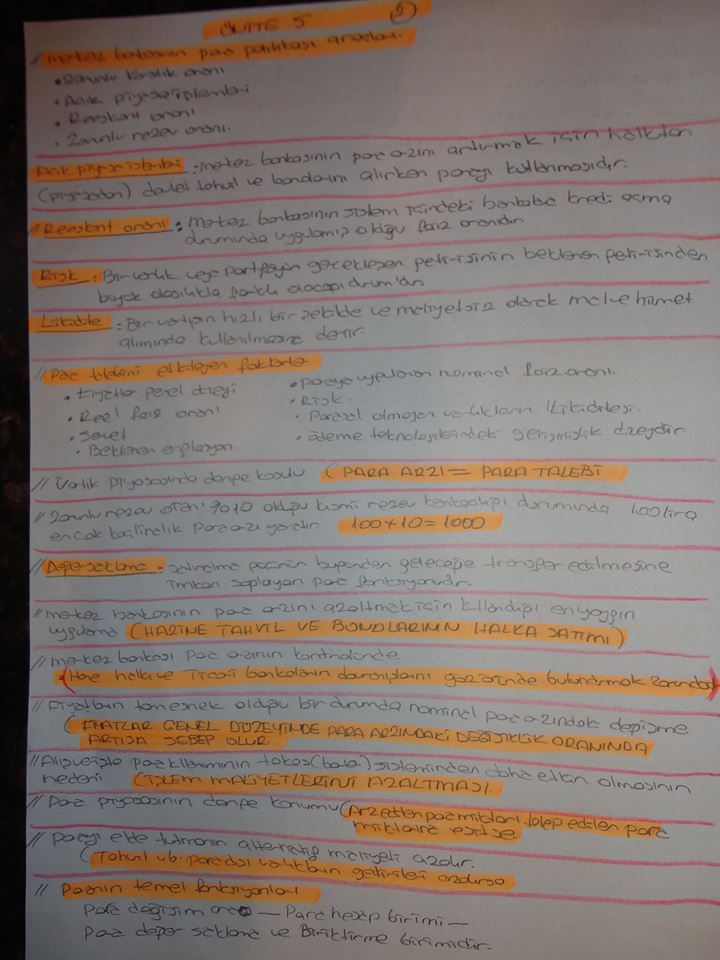 ÜNİTE 5 2
// merkez bankasının para politikası araçları.
• Zorunlu karşılık oranı
• Açık piyasa işlemleri
• Reeskont oranı
• Zorunlu rezerv oranı.
Açık piyasa işlemleri : merkez bankasının para arzını artırmak için halktan
(piyasadan) devlet tahvil ve bonolarını alırken parayı kullanmasıdır.
// Reeskont oranı : merkez bankasının sistem içindeki bankalara kredi açma
durumunda uygulamış olduğu faiz oranıdır.
Risk : Bir varlık veya portföyün gerçekleşen getirisinin beklenen getirisinden
büyük olasılıkla farklı olacağı durum'dur.
Likidite : Bir varlığın hızlı bir şekilde ve maliyetsiz olarak mal ve hizmet
alımında kullanılmasına denir.
// Para talebini etkileyen faktörler
• Fiyatlar genel düzeyi
• Reel faiz oranı
• Servet
• Beklenen enflasyon.
• paraya uygulanan nominal faiz oranı.
• Risk.
• Parasal olmayan varlıkların likiditesi.
• ödeme teknolojisindeki gelişmişlik düzeydir.
// Varlık piyasasında denge koşulu (PARA ARZI = PARA TALEBİ
// Zorunlu rezerv oranı %10 olduğu kısmi rezerv bankacılığı durumunda 100 lira
en çok liralık para arzı yaratır 100x10=1000
// Değer saklama : satınalma gücünün bugünden geleceğe transfer edilmesine
imkan sağlayan para fonksiyonudur.
// merkez bankasının para arzını azaltmak için kullandığı en yaygın
uygulama (HAZİNE TAHVİL VE BONOLARININ HALKA SATIMI)
// merkez bankası para arzının kontrolünde
(Hane halkı ve ticari bankaların davranışlarını göz önünde bulundurmak zorundadır)
// Fiyatların tam esnek olduğu bir durumda nominal para arzındaki değişme
(FİYATLAR GENEL DÜZEYİNDE PARA ARZINDAKİ DEĞİŞİKLİK ORANINDA
ARTIŞA SEBEP OLUR.
// Alışverişte para kullanımının takas (barter) sisteminden daha etkin olmasının
nedeni (İŞLEM MALİYETLERİNİ AZALTMASI.
// Para piyasasının denge konumu (Arz edilen para miktarı talep edilen para
miktarına eşitse
// Parayı elde tutmanın alternatif maliyeti azalır.
(Tahvil vb. para dışı varlıkların getirileri azalırsa
// Paranın temel fonksiyonları
Para değişim aracı — Para hesap birimi —
Para değer saklama ve Biriktirme birimidir.